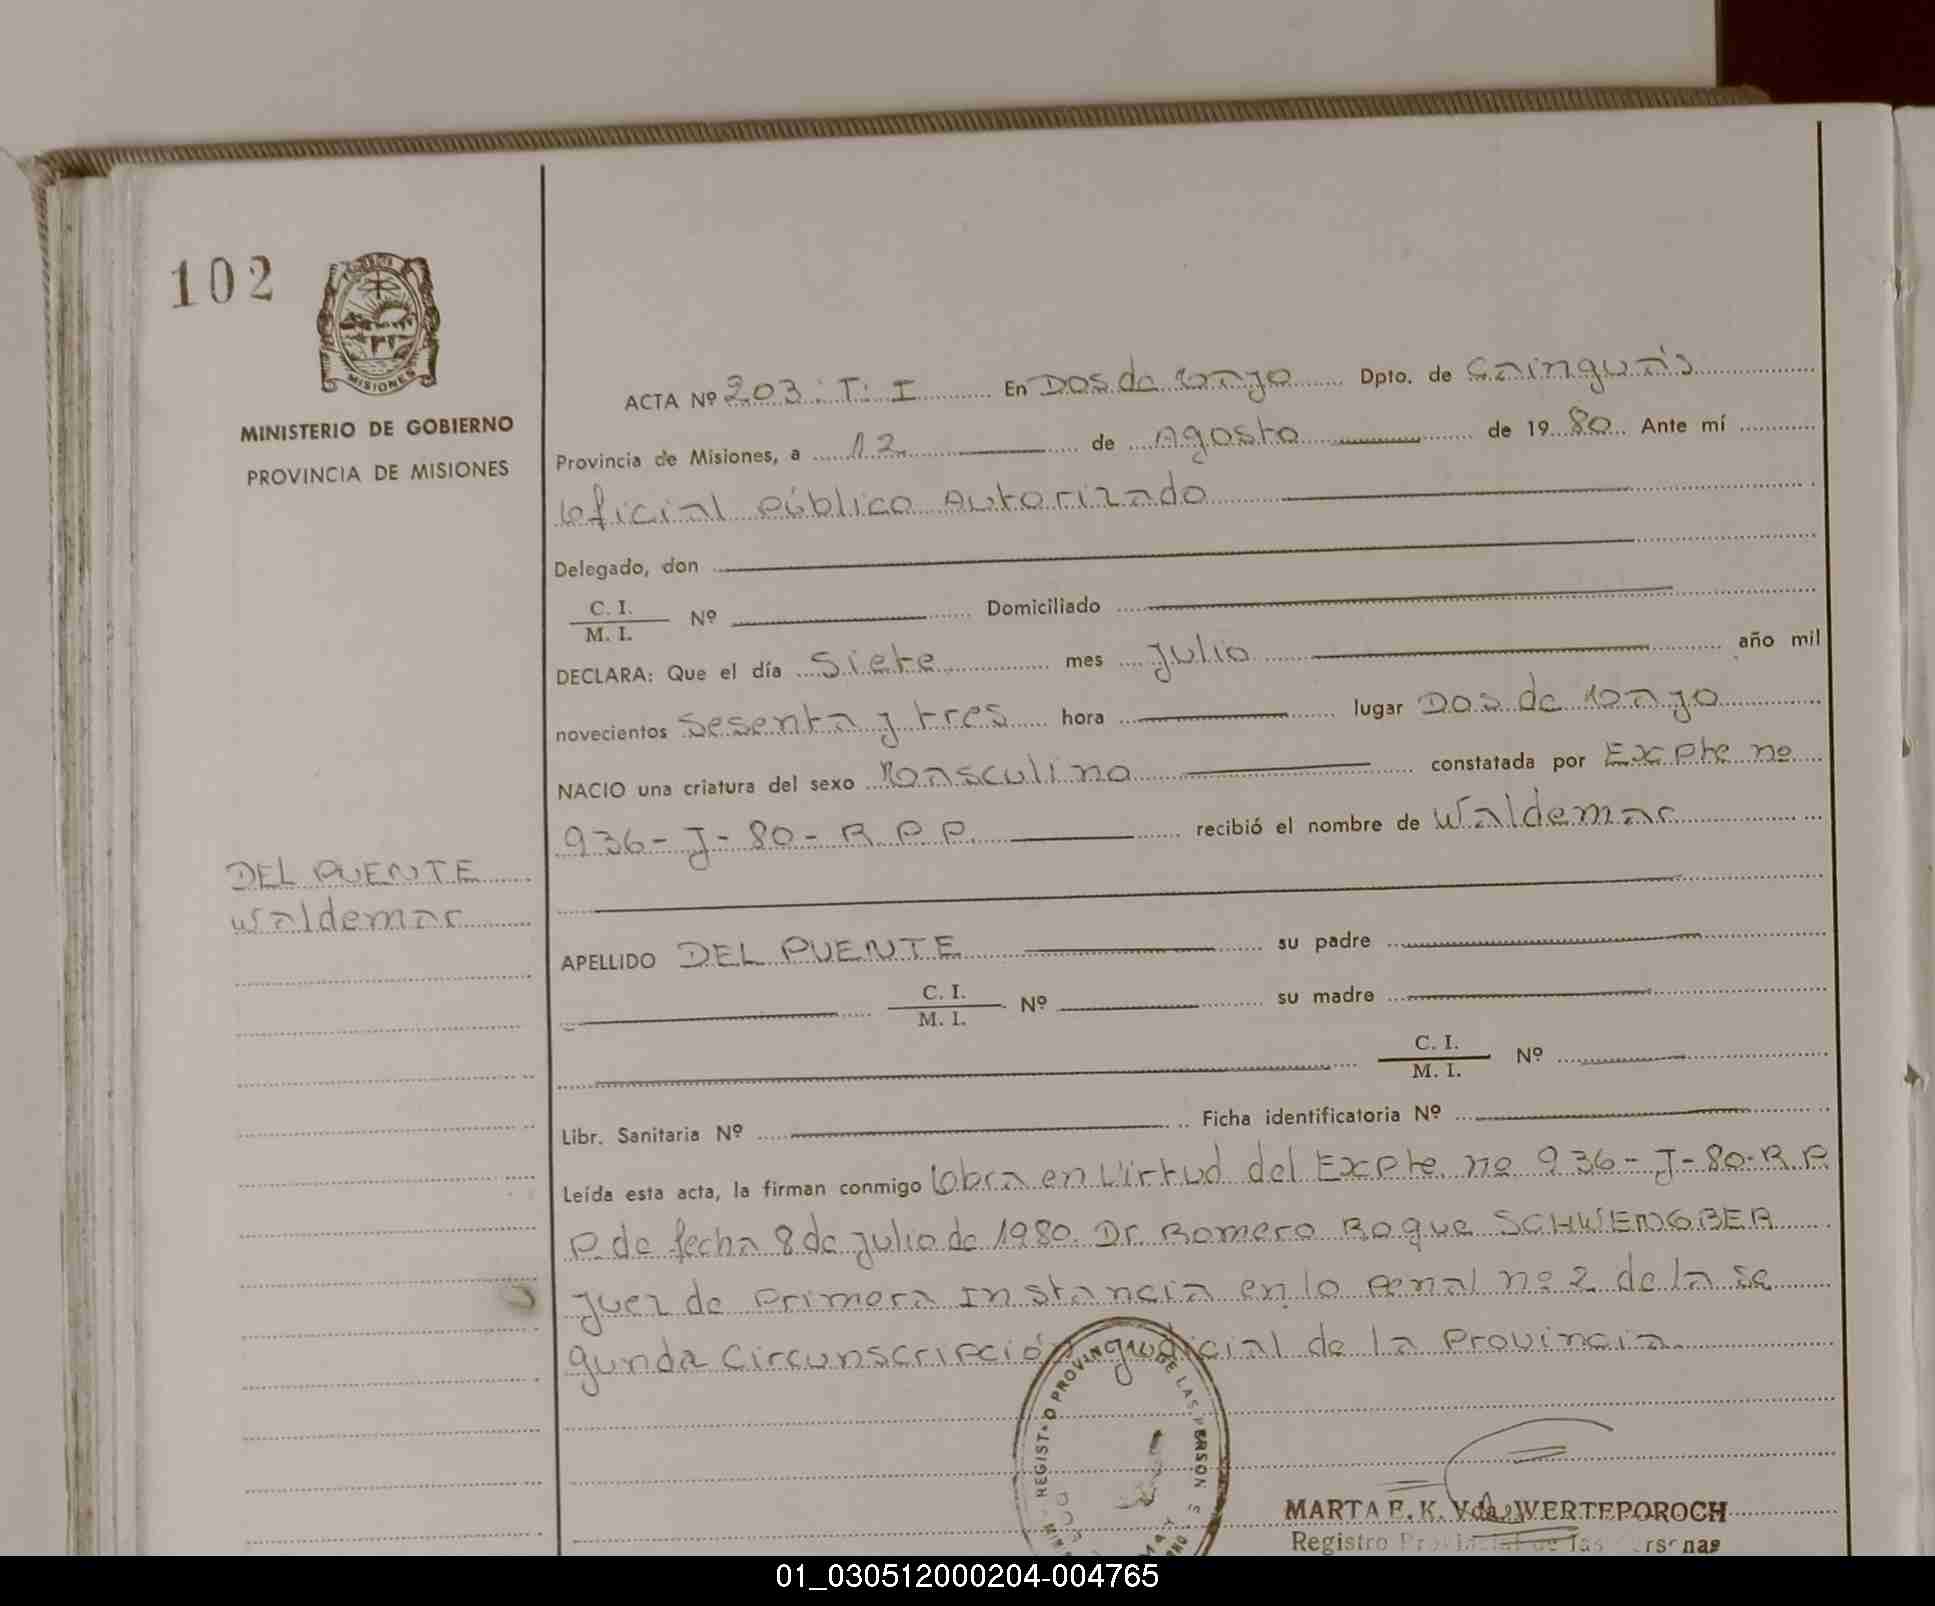 102
MISIONES
MINISTERIO DE GOBIERNO
PROVINCIA DE MISIONES
ACTA Nº 203: T: I En Dos de Mayo Dpto. de Cainguás
Provincia de Misiones, a 12 de Agosto de 1980 Ante mí
Oficial Público Autorizado
Delegado, don
C. I.
M. I. Nº Domiciliado
DECLARA: Que el día Siete mes Julio año mil
novecientos Sesenta y tres hora lugar Dos de Mayo
NACIO una criatura del sexo Masculino constatada por Expte nº
936-J-80-R.P.P. recibió el nombre de Waldemar
DEL PUENTE
Waldemar
APELLIDO DEL PUENTE su padre
C. I.
M. I. Nº su madre
C. I.
M. I. Nº
Libr. Sanitaria Nº Ficha identificatoria Nº
Leída esta acta, la firman conmigo Obra en Virtud del Expte. nº 936-J-80-R.P.
P. de fecha 8 de Julio de 1980. Dr. Romero Roque SCHWENGBER
Juez de Primera Instancia en lo Penal nº 2 de la Se
gunda Circunscripción Judicial de la Provincia.
REGISTRO PROVINCIAL DE LAS PERSONAS
MARTA E. K. Vda. WERTEPOROCH
Registro Provincial de las Personas
01_030512000204-004765